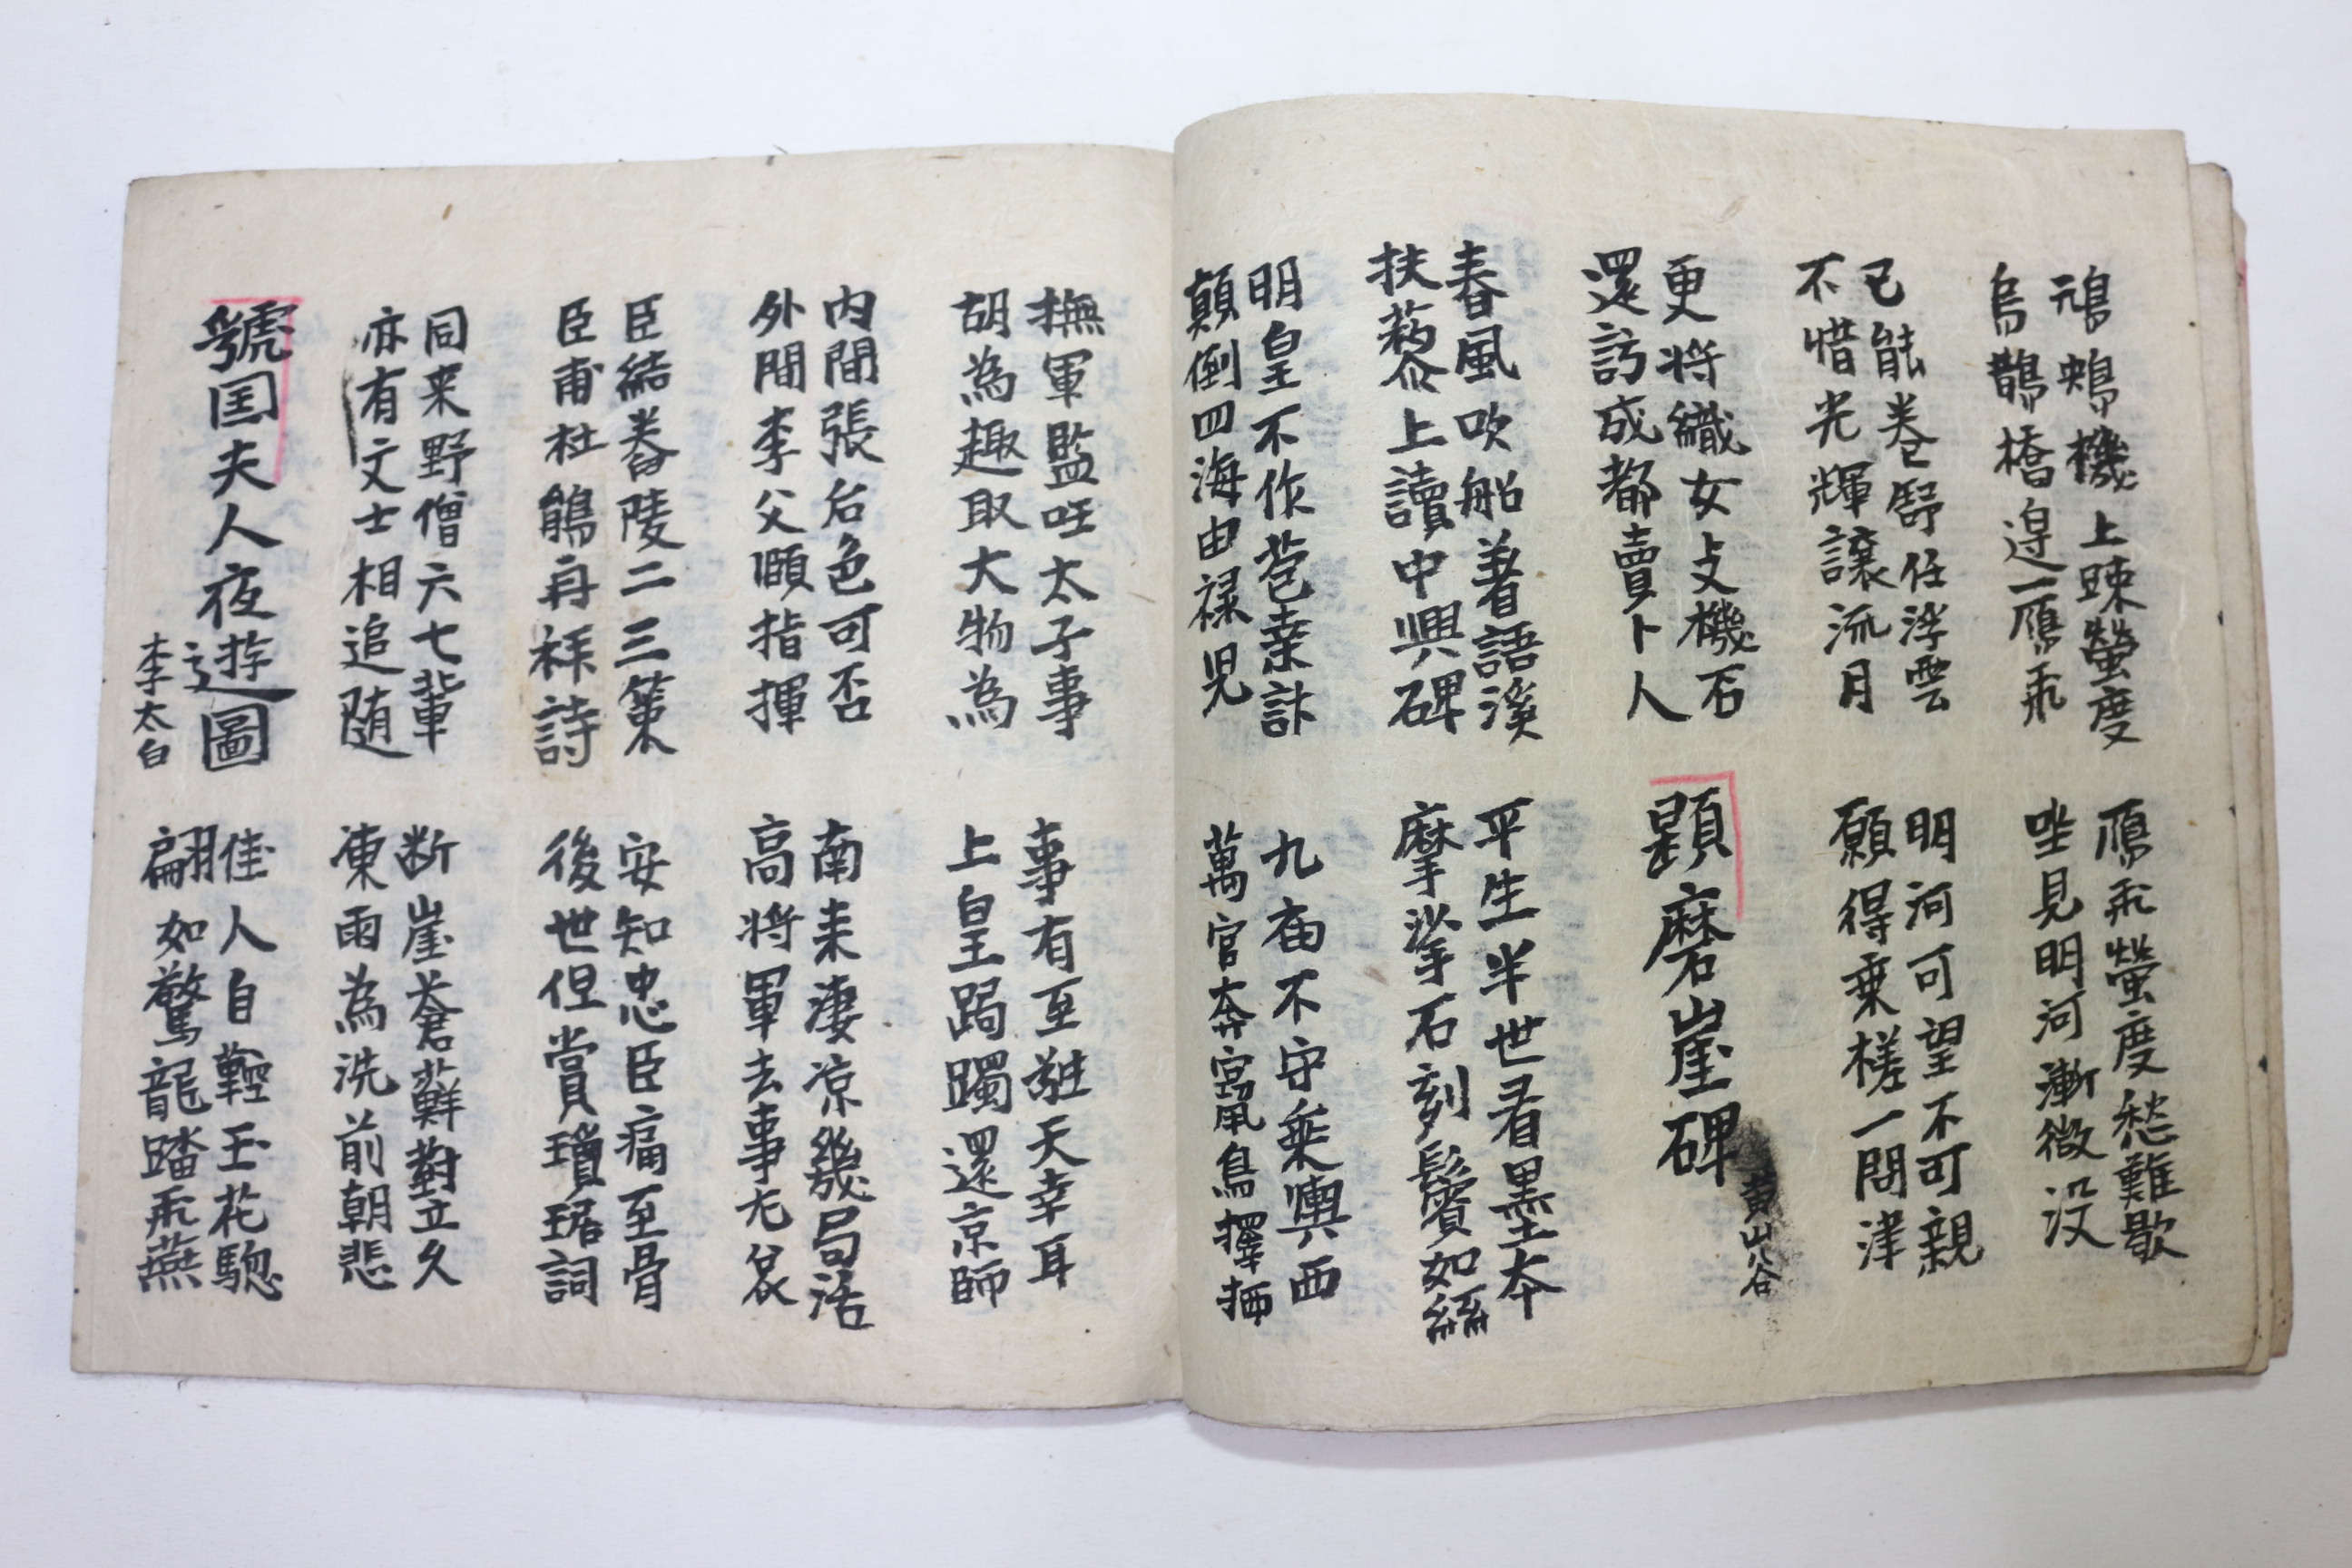 鴛鴦機上踈螢度
烏鵲橋邉一鴈飛
鴈飛螢度愁難歇
坐見明河漸微没
已能卷舒任浮雲
不惜光輝讓流月
明河可望不可親
願得乗槎一問津
更将織女支機石
還訪成都賣卜人
題磨崖碑
黄山谷
春風吹船著語溪
扶藜上讀中興碑
平生半世看墨本
摩挲石刻鬢如絲
明皇不作苞桒計
顛倒四海由禄児
九庙不守乗輿西
萬官奔竄鳥擇栖
撫軍監国太子事
胡為趣取大物為
事有至難天幸耳
上皇跼躅還京師
内間張后色可否
外間李父頤指揮
南来凄凉幾局活
高将軍去事尤危
臣結春陵二三策
臣甫杜鵑再拜詩
安知忠臣痛至骨
後世但賞瓊琚詞
同来野僧六七輩
亦有文士相追随
断崖蒼蘚對立久
凍雨為洗前朝悲
虢国夫人夜遊圖
李太白
佳人自鞚玉花驄
翩如驚龍踏飛燕